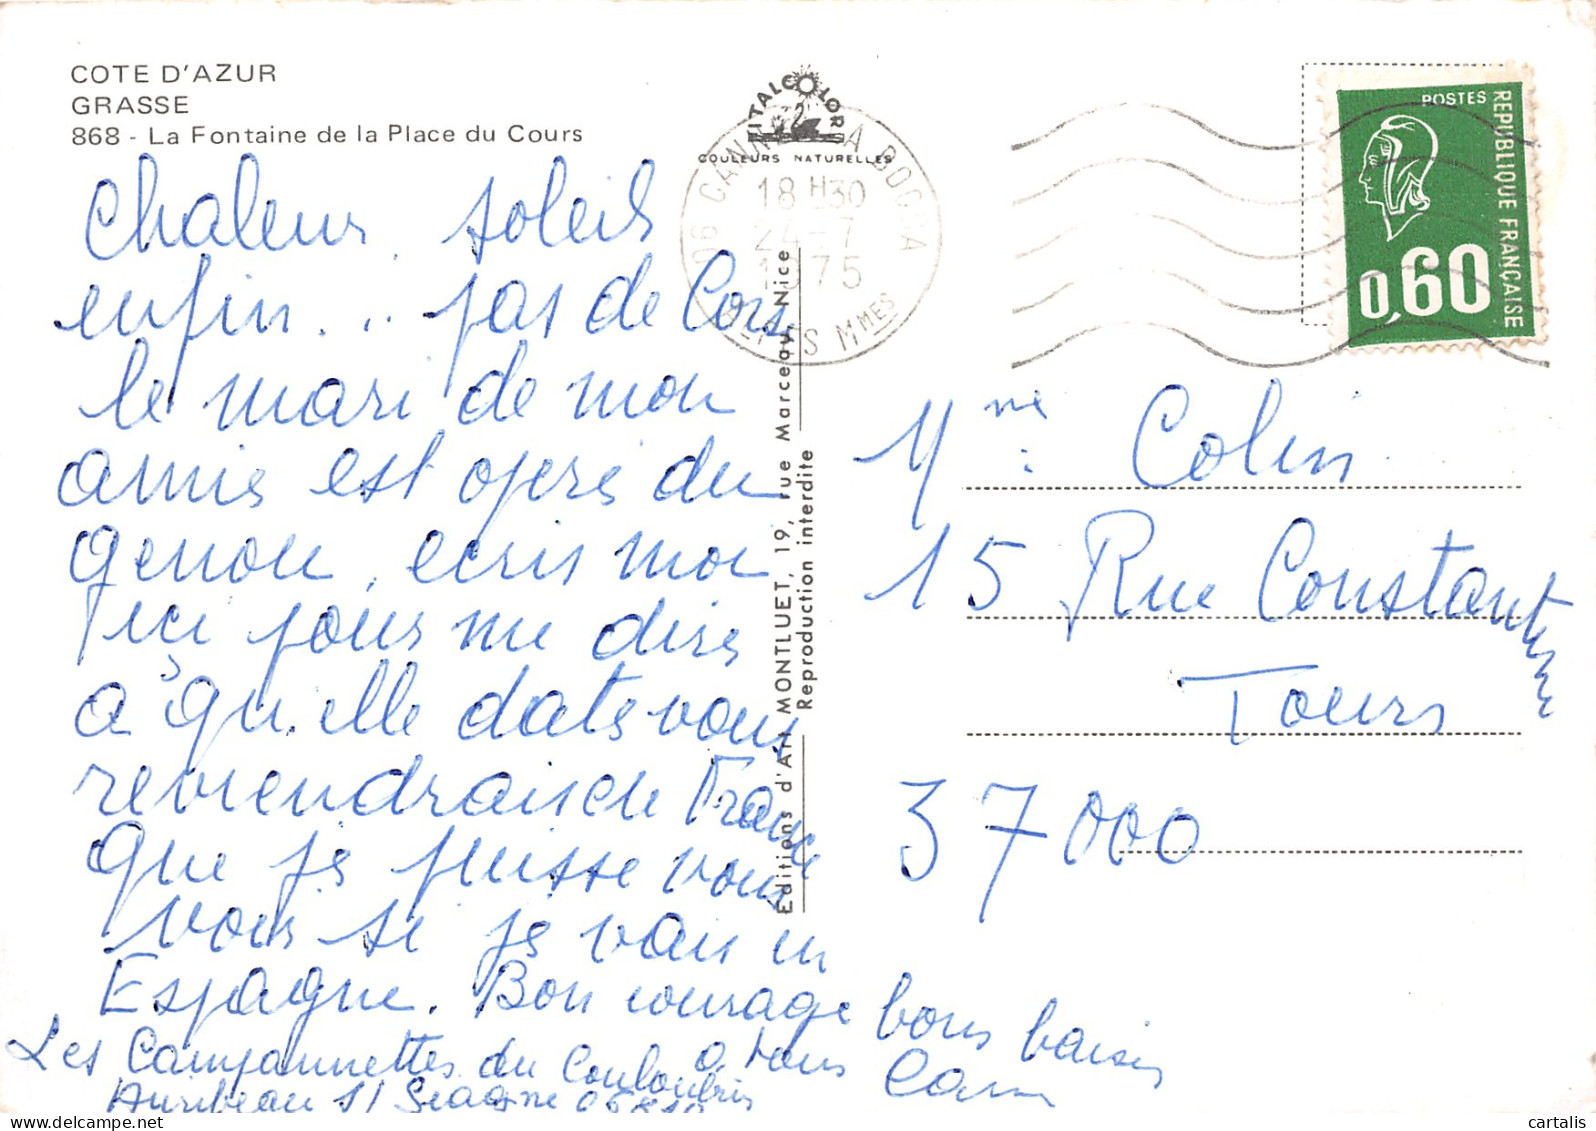 COTE D'AZUR
GRASSE
868 - La Fontaine de la Place du Cours
VITALCOLOR
COULEURS NATURELLES
06 CANNES LA BOCCA
18 H30
24-7
1975
ALPES MMES
POSTES
REPUBLIQUE FRANÇAISE
0,60
Chaleur, soleil
enfin... pas de Cors
le mari de mon
amie est opere du
genou, ecris moi
ici pour me dire
a qu'elle date vous
reviendrais de France
que je puisse vous
voir si je vais en
Espagne. Bon courage bons baisers
a tous
Les Campannettes du Couloubris
Auribeau s/ Siagne
Editions d'Art MONTLUET, 19, rue Marceau, Nice
Reproduction interdite
Mme: Colin
15 Rue Constantine
Tours
37000
cartalis